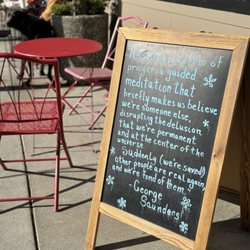 prayer, a guided
meditation that
briefly makes us believe
we're someone else,
disrupting the delusion
that we're permanent
and at the center of the
universe.
Suddenly (we're saved!)
other people are real again,
and we're fond of them.
-George
Saunders